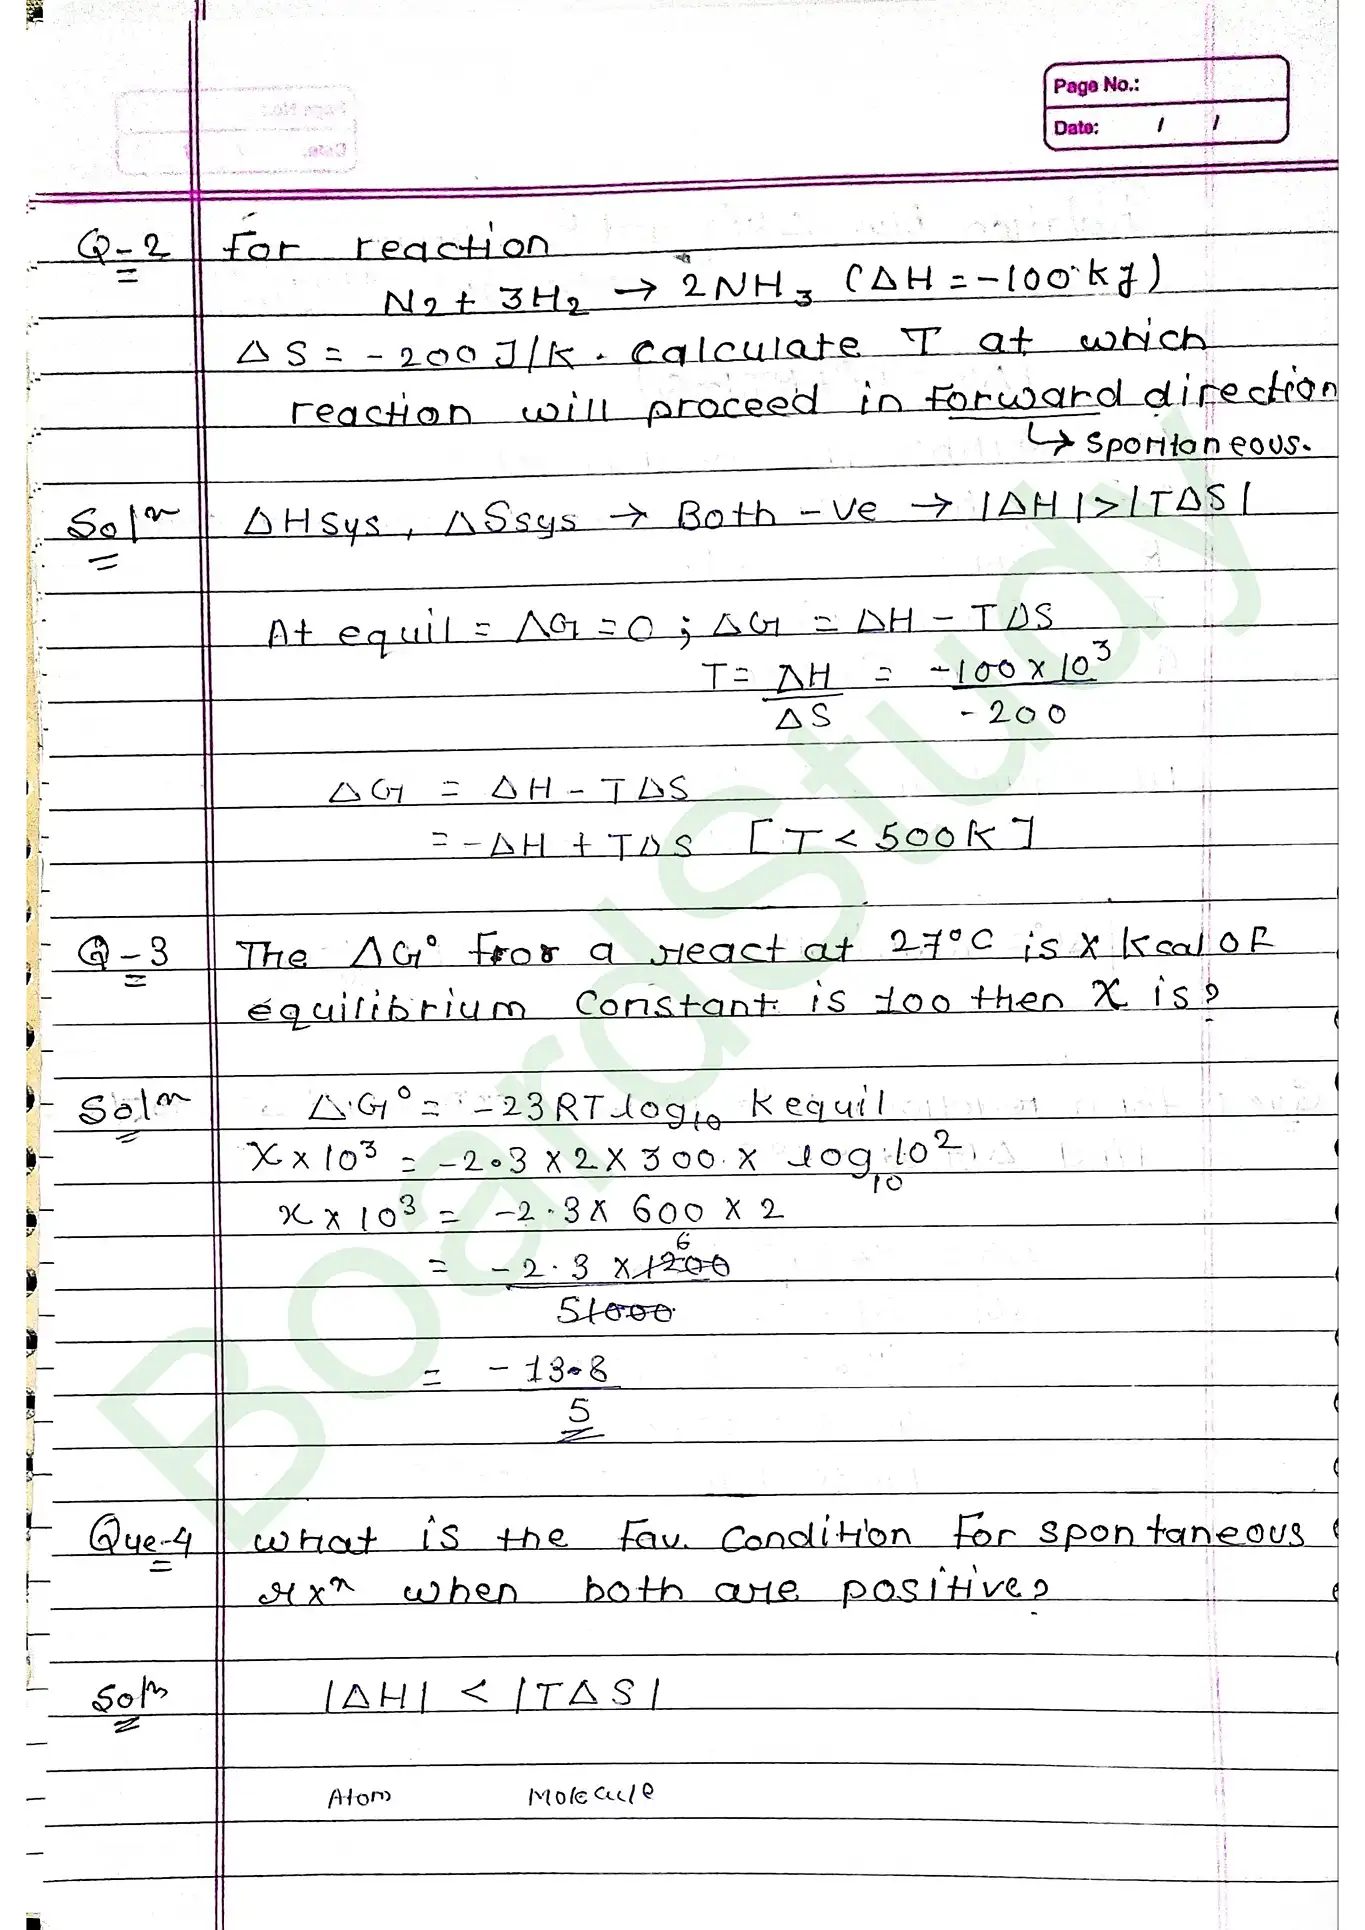 Page No.:
Date: / /
Q-2 For reaction
N2 + 3H2 → 2NH3 (ΔH = -100 kJ)
ΔS = -200 J/K. Calculate T at which
reaction will proceed in forward direction
↳ spontaneous.
Solⁿ ΔHsys, ΔSsys → Both -ve → |ΔH| > |TΔS|
At equil = ΔG = 0 ; ΔG = ΔH - TΔS
T = ΔH = -100 x 10³
ΔS - 200
ΔG = ΔH - TΔS
= -ΔH + TΔS [T < 500K]
Q-3 The ΔG° for a react at 27°C is x kcal of
equilibrium constant is 100 then x is?
Solⁿ ΔG° = -23RT log10 Kequil
x x 10³ = -2.3 x 2 x 300 x log10 10²
x x 10³ = -2.3 x 600 x 2
6
= -2.3 x 1200
51000
= -13.8
5
Que-4 What is the fav. condition for spontaneous
rxⁿ when both are positive?
Solⁿ |ΔH| < |TΔS|
Atom Molecule
BoardStudy